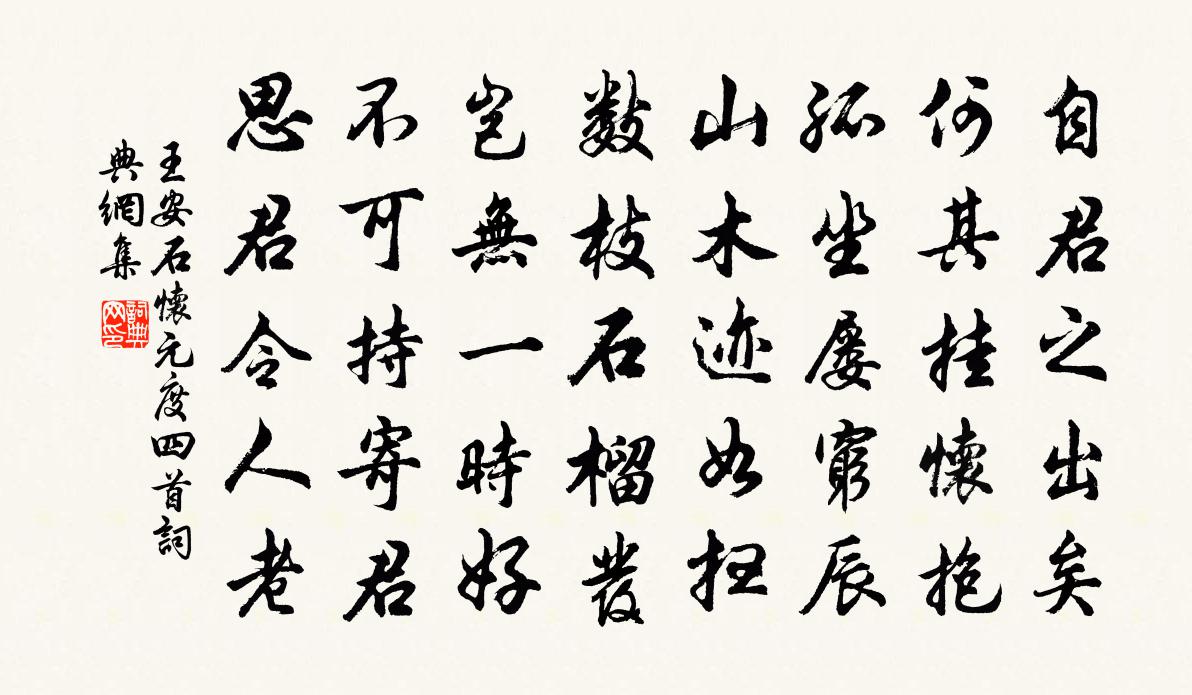 自君之出矣
何其挂懷抱
孤坐屡窮辰
山木迹如扫
數枝石榴發
豈無一時好
不可持寄君
思君令人老
王安石懷元度四首詞
典網集
詞典网印